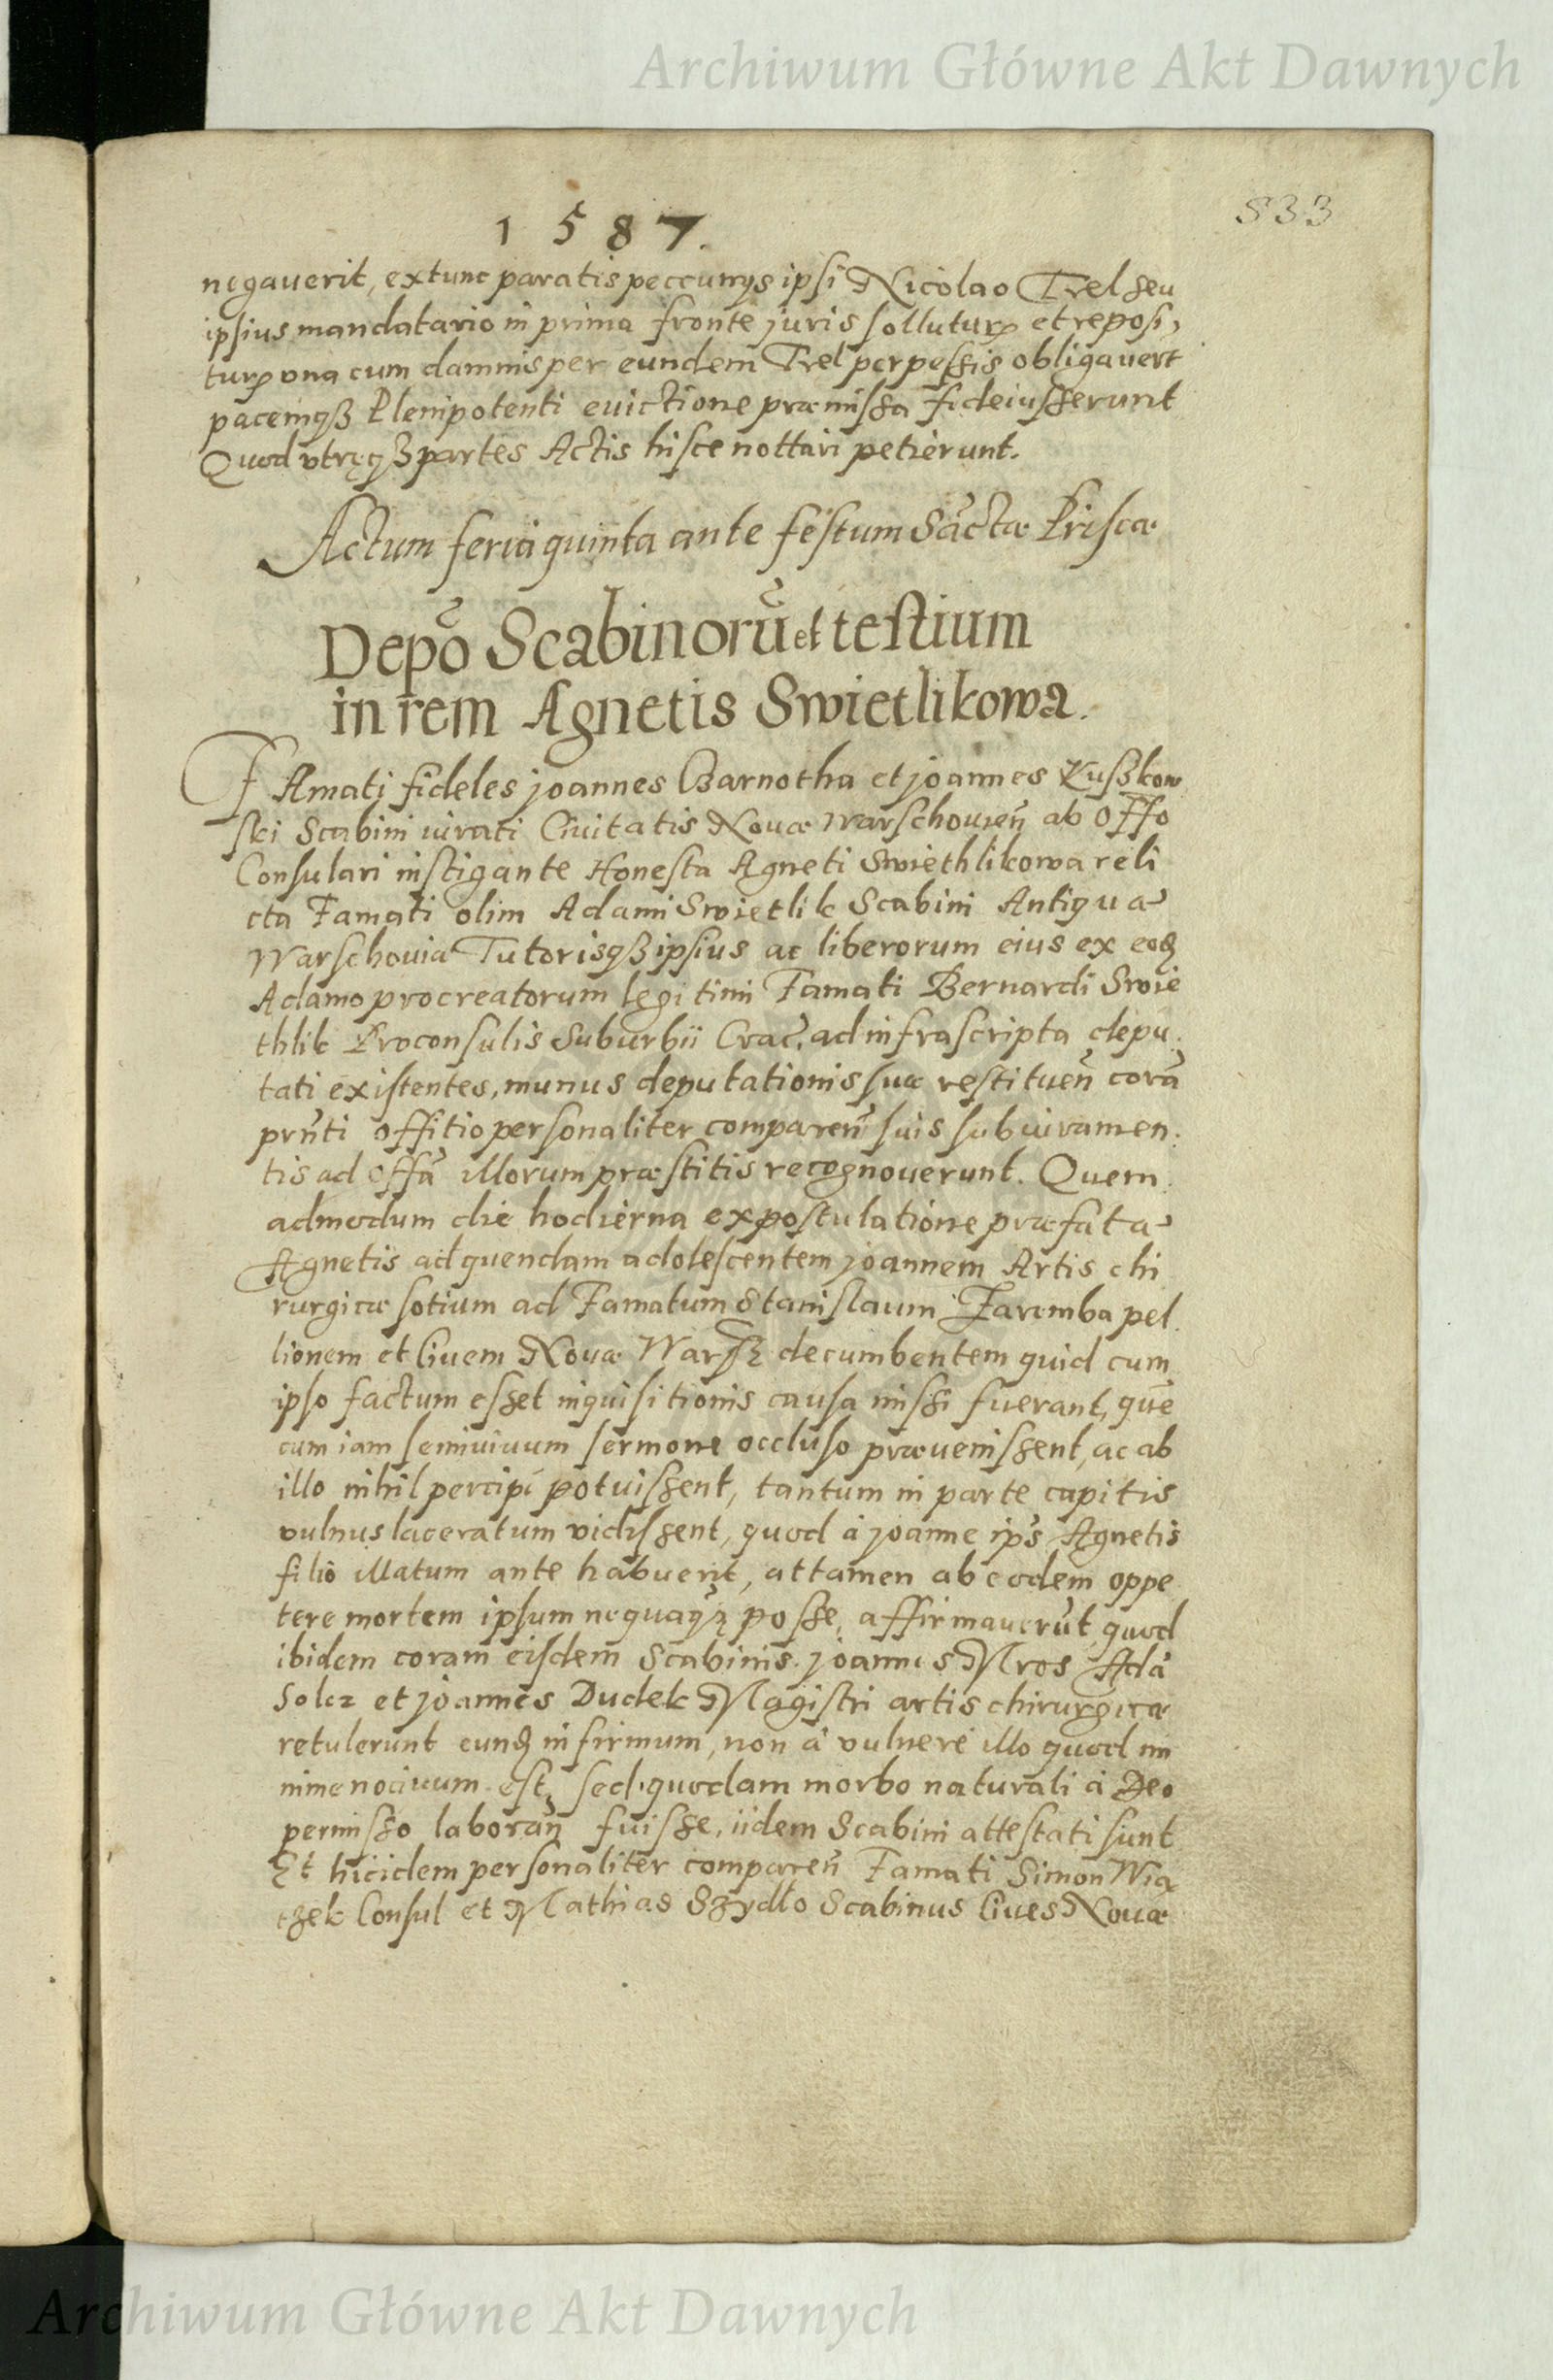 Archiwum Główne Akt Dawnych
833
1587.
negauerit, extunc paratis peccunijs ipsi Nicolao Trel seu
ipsius mandatario in prima fronte juris solluturꝝ et reposi,
turꝝ vna cum damnis per eundem Trel perpessis obligauert
pacemqꝫ Plenipotenti euictione præmissa fideiusserunt
Quod vtręqꝫ partes Actis hisce nottari petierunt.
Actum feria quinta ante festum Sāctæ Priscæ
Depo͂ Scabinorū et testium
in rem Agnetis Swietlikowa.
FAmati fideles joannes Czarnotha et joannes Kuszkow
ski Scabini iurati Ciuitatis Nouæ Warschouień ab Offo
Consulari instigante Honesta Agneti Swiethlikowa reli
cta Famati olim Adami Swietlik Scabini Antiquæ
Warschouiæ Tutorisqꝫ ipsius ac liberorum eius ex eođ
Adamo procreatorum legitimi Famati Bernardi Swie
thlik Proconsulis Suburbii Crac̃. ad infrascripta depu.
tati existentes, munus deputationis suæ restitueñ corā
prñti offitio personaliter compareñ suis sub iuramen.
tis ad offā illorum præstitis recognouerunt. Quem
admodum die hodierna expostulatione præfatæ
Agnetis ad quendam adolescentem joannem Artis chi
rurgicæ sotium ad Famatum Stanislaum Zaremba pel.
lionem et Ciuem Nouæ Warsz decumbentem quid cum
ipso factum esset inquisitionis causa missi fuerant, quē
cum iam semiuiuum sermone occluso præuenissent, ac ab
illo nihil percipi potuissent, tantum in parte capitis
vulnus laceratum vidissent, quod à joanne ip̃s Agnetis
filio illatum ante habuerit, attamen ab eodem oppe
tere mortem ipsum nequaqꝫ posse, affirmauerūt quod
ibidem coram eisdem Scabinis joannes Mros Adā
Solcz et joannes Dudek Magistri artis chirurgicæ
retulerunt eunđ infirmum, non à vulnere illo quod mi
nime nociuum est, sed quodam morbo naturali à Deo
permisso laborañ fuisse, iidem Scabini attestati sunt
Et hic idem personaliter compareñ Famati Simon Wią
tzek Consul et Mathias Szydło Scabinus Ciues Nouæ
Archiwum Główne Akt Dawnych